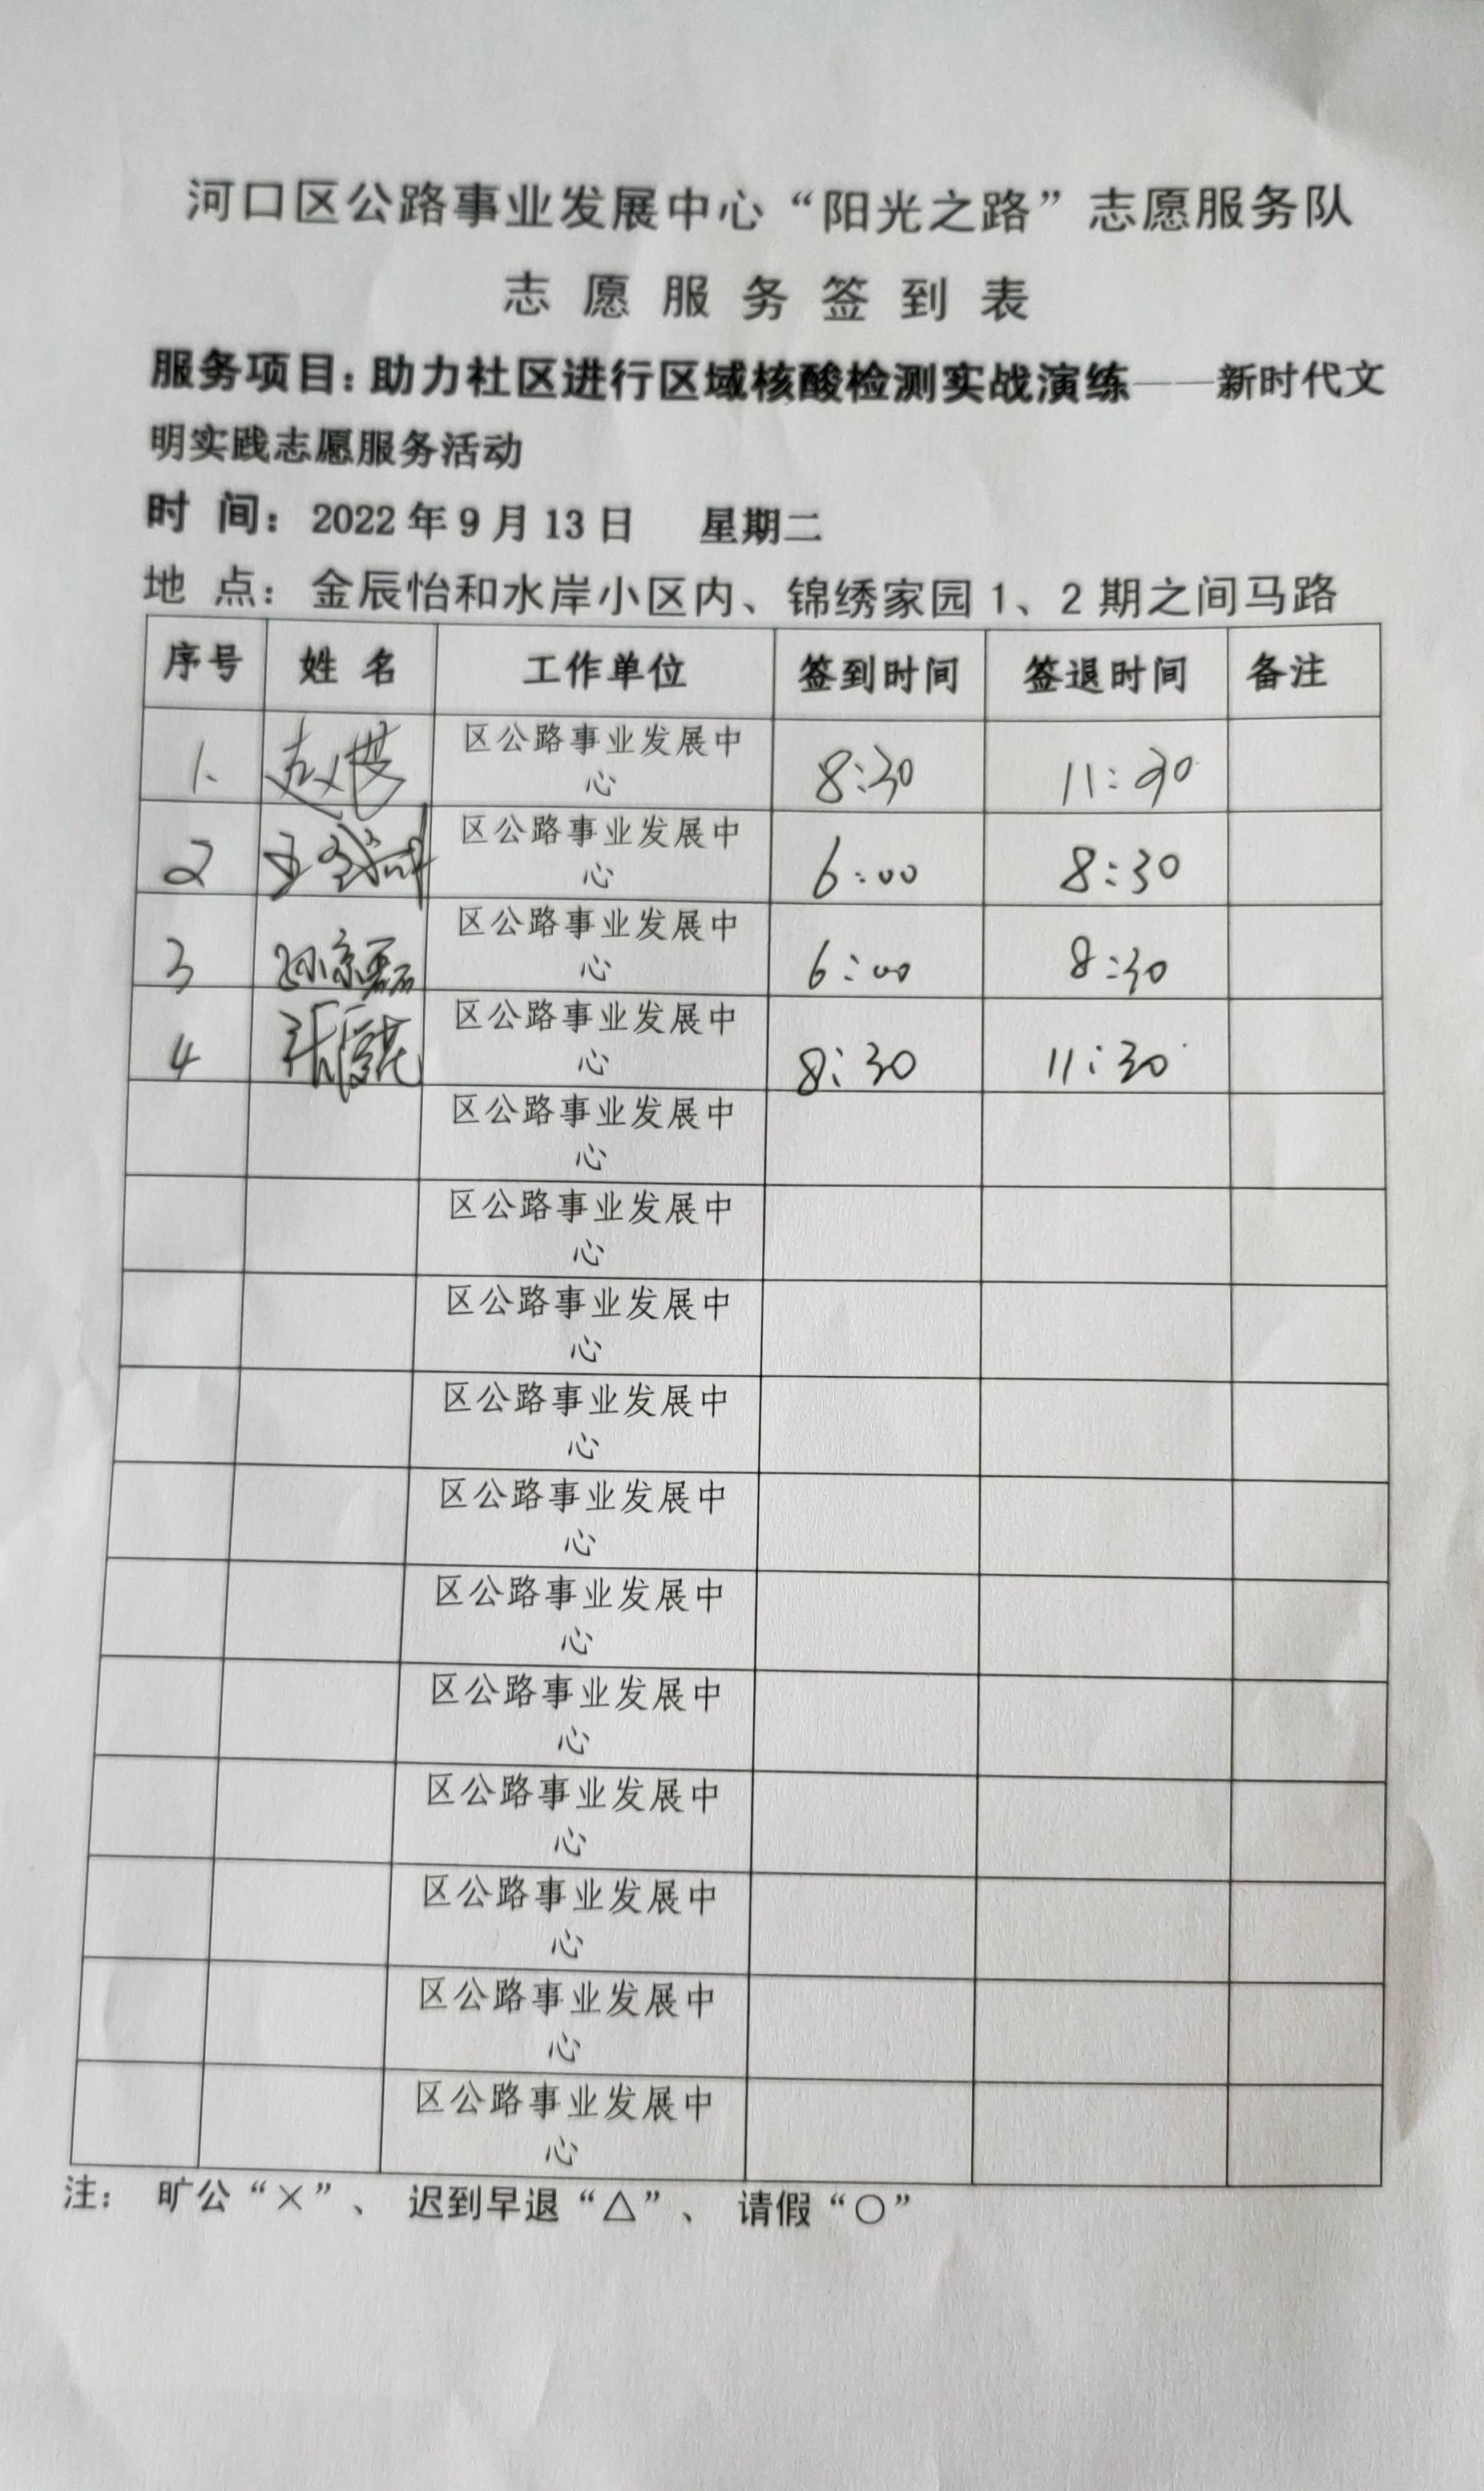 河口区公路事业发展中心“阳光之路”志愿服务队
志愿服务签到表
服务项目：助力社区进行区域核酸检测实战演练——新时代文
明实践志愿服务活动
时 间：2022年9月13日 星期二
地 点：金辰怡和水岸小区内、锦绣家园1、2期之间马路
序号 姓 名 工作单位 签到时间 签退时间 备注
1、 区公路事业发展中 8:30 11:30
心
2 区公路事业发展中 6:00 8:30
心
3 孙京磊 区公路事业发展中 6:00 8:30
心
4 区公路事业发展中 8:30 11:30
心
区公路事业发展中
心
区公路事业发展中
心
区公路事业发展中
心
区公路事业发展中
心
区公路事业发展中
心
区公路事业发展中
心
区公路事业发展中
心
区公路事业发展中
心
区公路事业发展中
心
区公路事业发展中
心
区公路事业发展中
心
注： 旷公“×”、 迟到早退“△”、 请假“○”